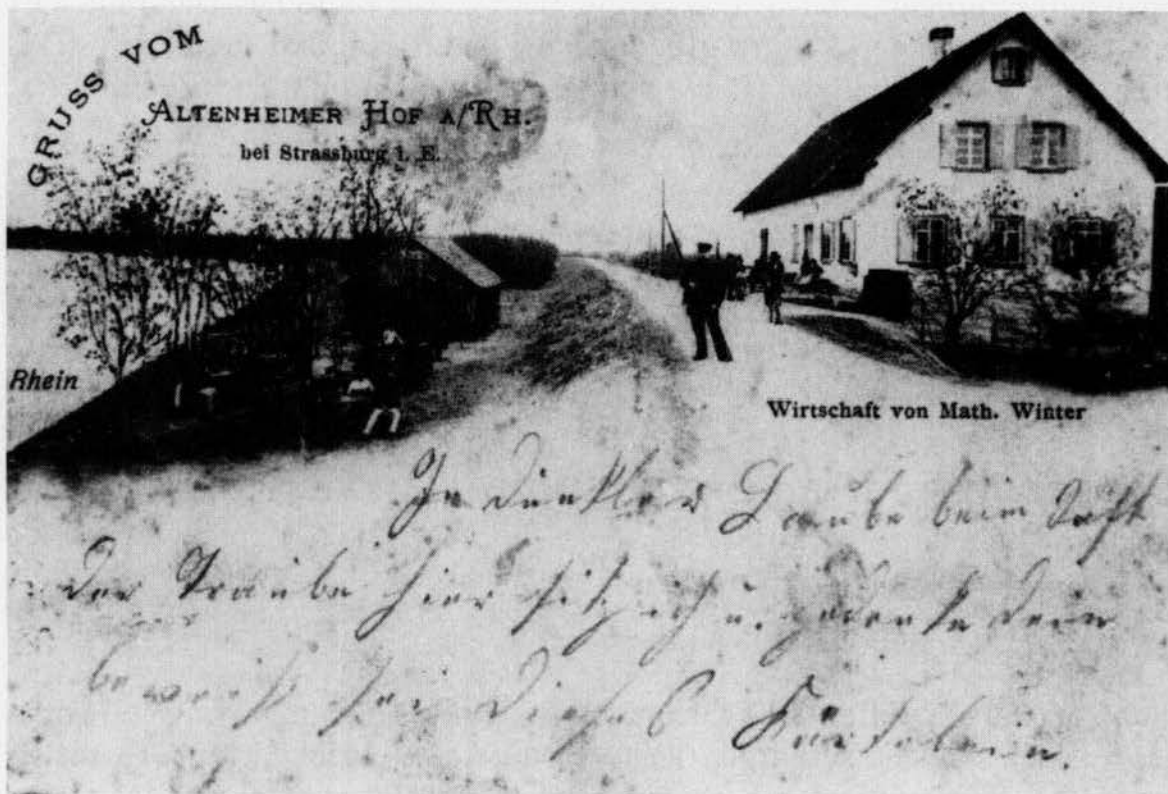 GRUSS VOM
ALTENHEIMER HOF A/RH.
bei Strassburg i. E.
Rhein
Wirtschaft von Math. Winter
In dunkler Laube beim Saft
der Traube hier sitz ich u. gedenke dein
beweis sei dieses Kärtelein.